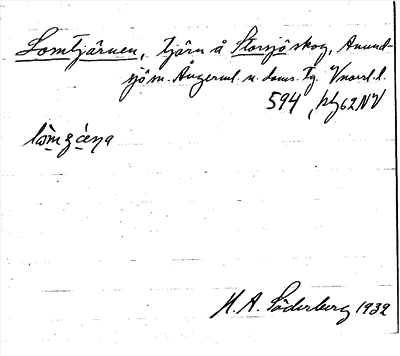 Lomtjärnen, tjärn å Storsjö skog, Anund-
sjö sn. Ångerml. n. doms. Tg. Vnorrl. l.
594, bl 62 NV
lòmɡ̧æ̀ṇa
H. A. Söderberg 1932